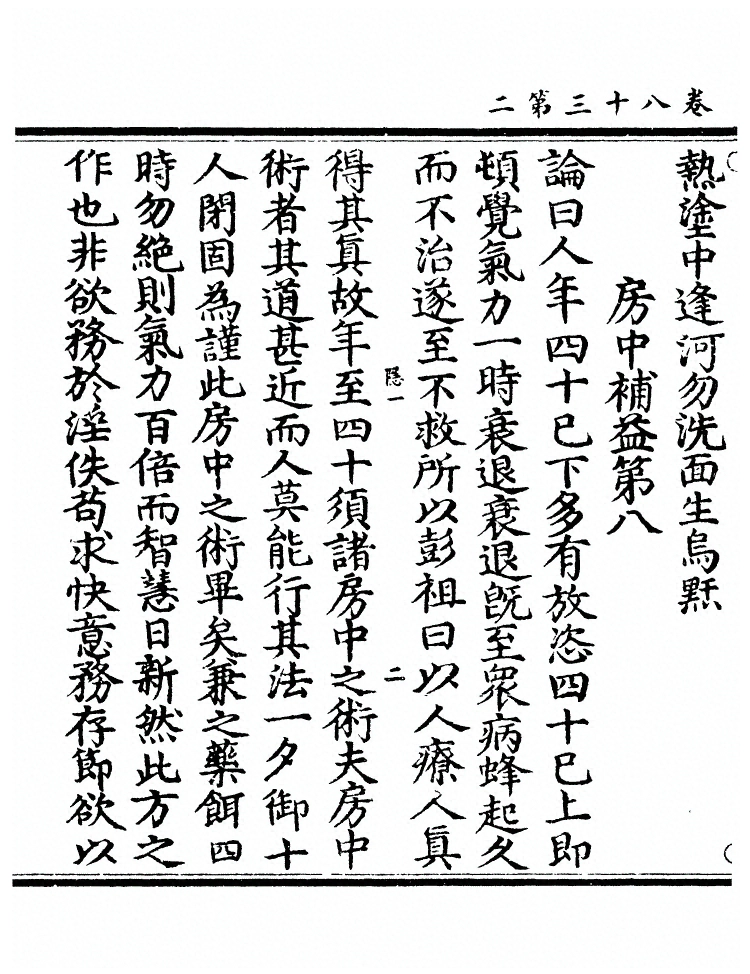 卷八十三第二
熱塗中逢河勿洗面生烏䵟
房中補益第八
論曰人年四十巳下多有放恣四十巳上即
頓覺氣力一時衰退衰退旣至衆病蜂起久
而不治遂至不救所以彭祖曰以人療人眞
隱一
二
得其眞故年至四十須諸房中之術夫房中
術者其道甚近而人莫能行其法一夕御十
人閉固為謹此房中之術畢矣兼之藥餌四
時勿絶則氣力百倍而智慧日新然此方之
作也非欲務於淫佚苟求快意務存節欲以